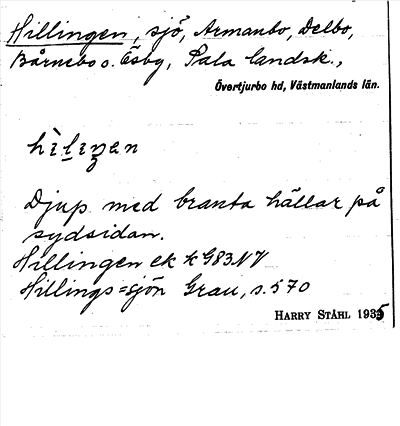 Hillingen, sjö, Armanbo, Delbo,
Bårnebo o. Ösby, Sala landsk.,
Övertjurbo hd, Västmanlands län.
Djup med branta hällar på
sydsidan.
Hillingen ek k G83NV
Hillings=sjön Grau, s. 570
HARRY STÅHL 1935